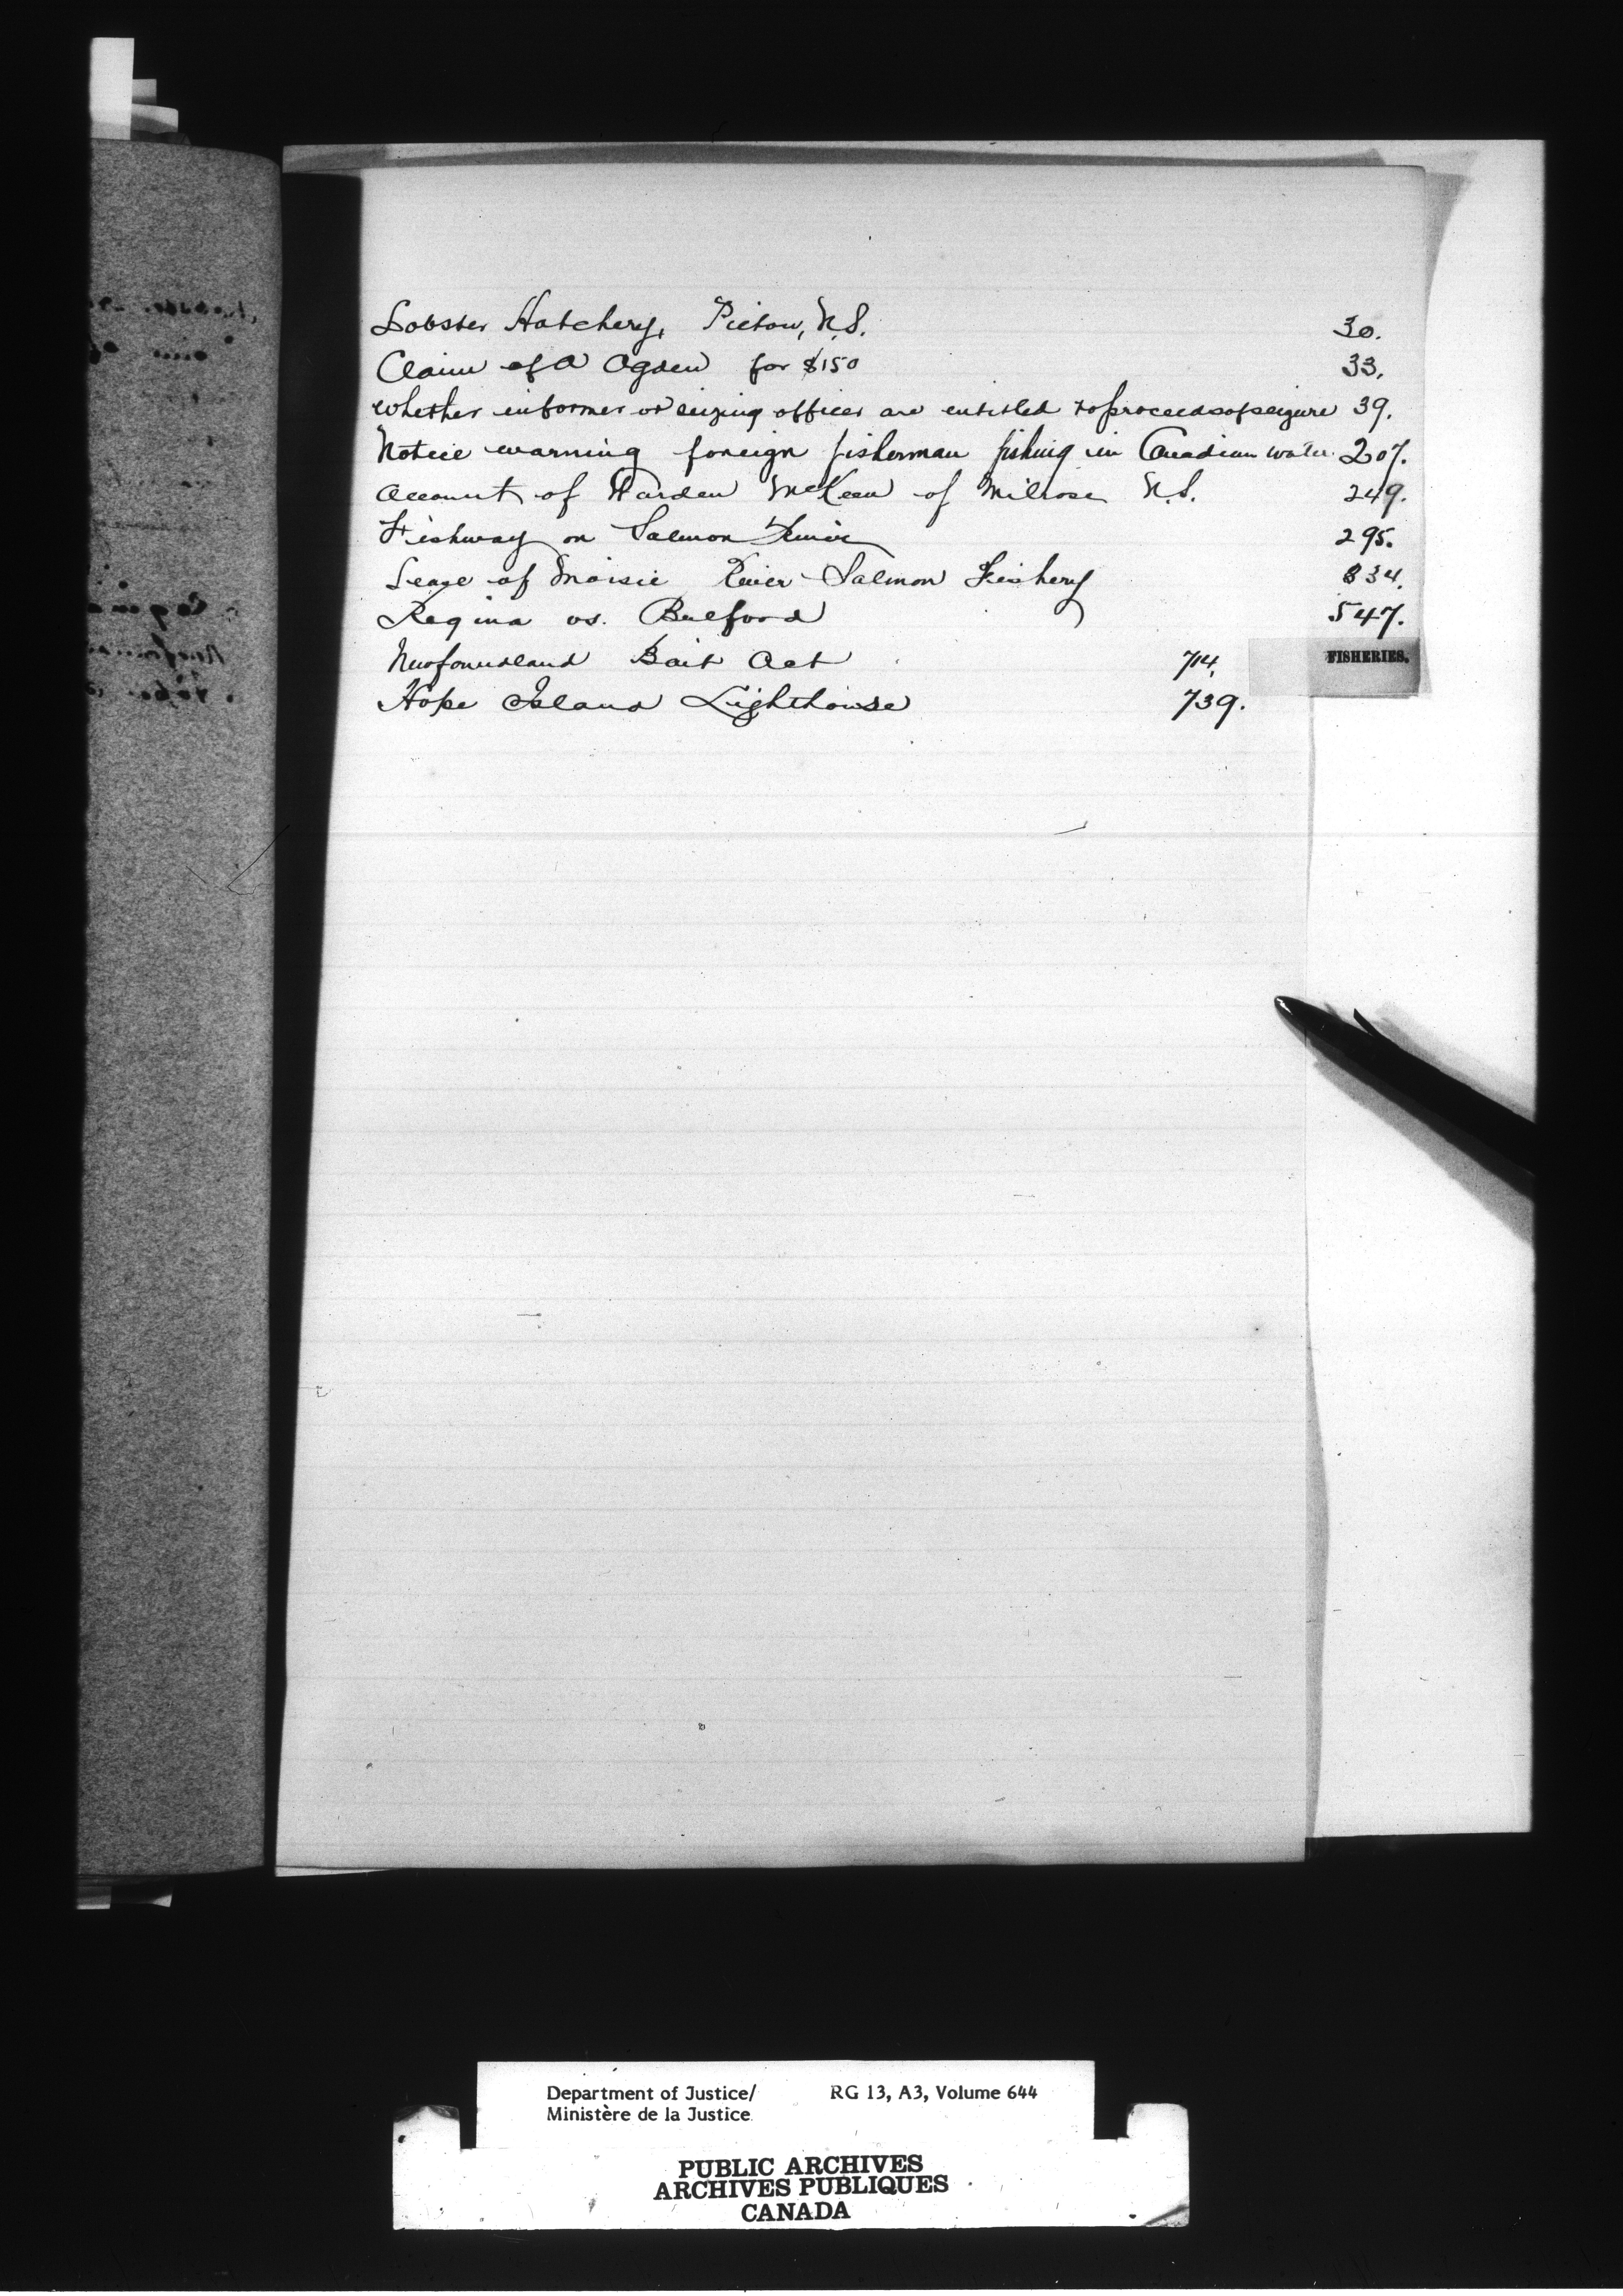 Lobster Hatchery, Pictou, N.S. 30.
Claim of A Ogden for $150 33.
Whether informer or seizing officer are entitled to proceeds of seizure 39.
Notice warning foreign fisherman fishing in Canadian water 207.
Account of Warden McKeen of Milrose N.S. 249.
Fishway on Salmon River 295.
Lease of Moisie River Salmon Fishery 334.
Regina vs. Bulford 547.
Newfoundland Bait Act 714.
FISHERIES.
Hope Island Lighthouse 739.
Department of Justice/ RG 13, A3, Volume 644
Ministère de la Justice
PUBLIC ARCHIVES
ARCHIVES PUBLIQUES
CANADA